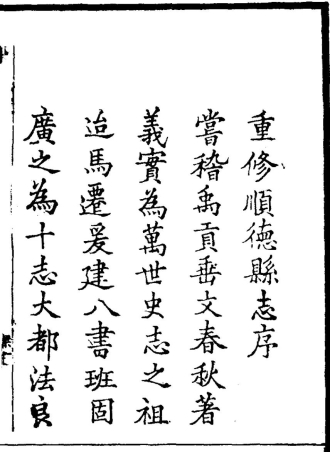 重修順德縣志序
嘗稽禹貢垂文春秋著
義實為萬世史志之祖
迨馬遷爰建八書班固
廣之為十志大都法良